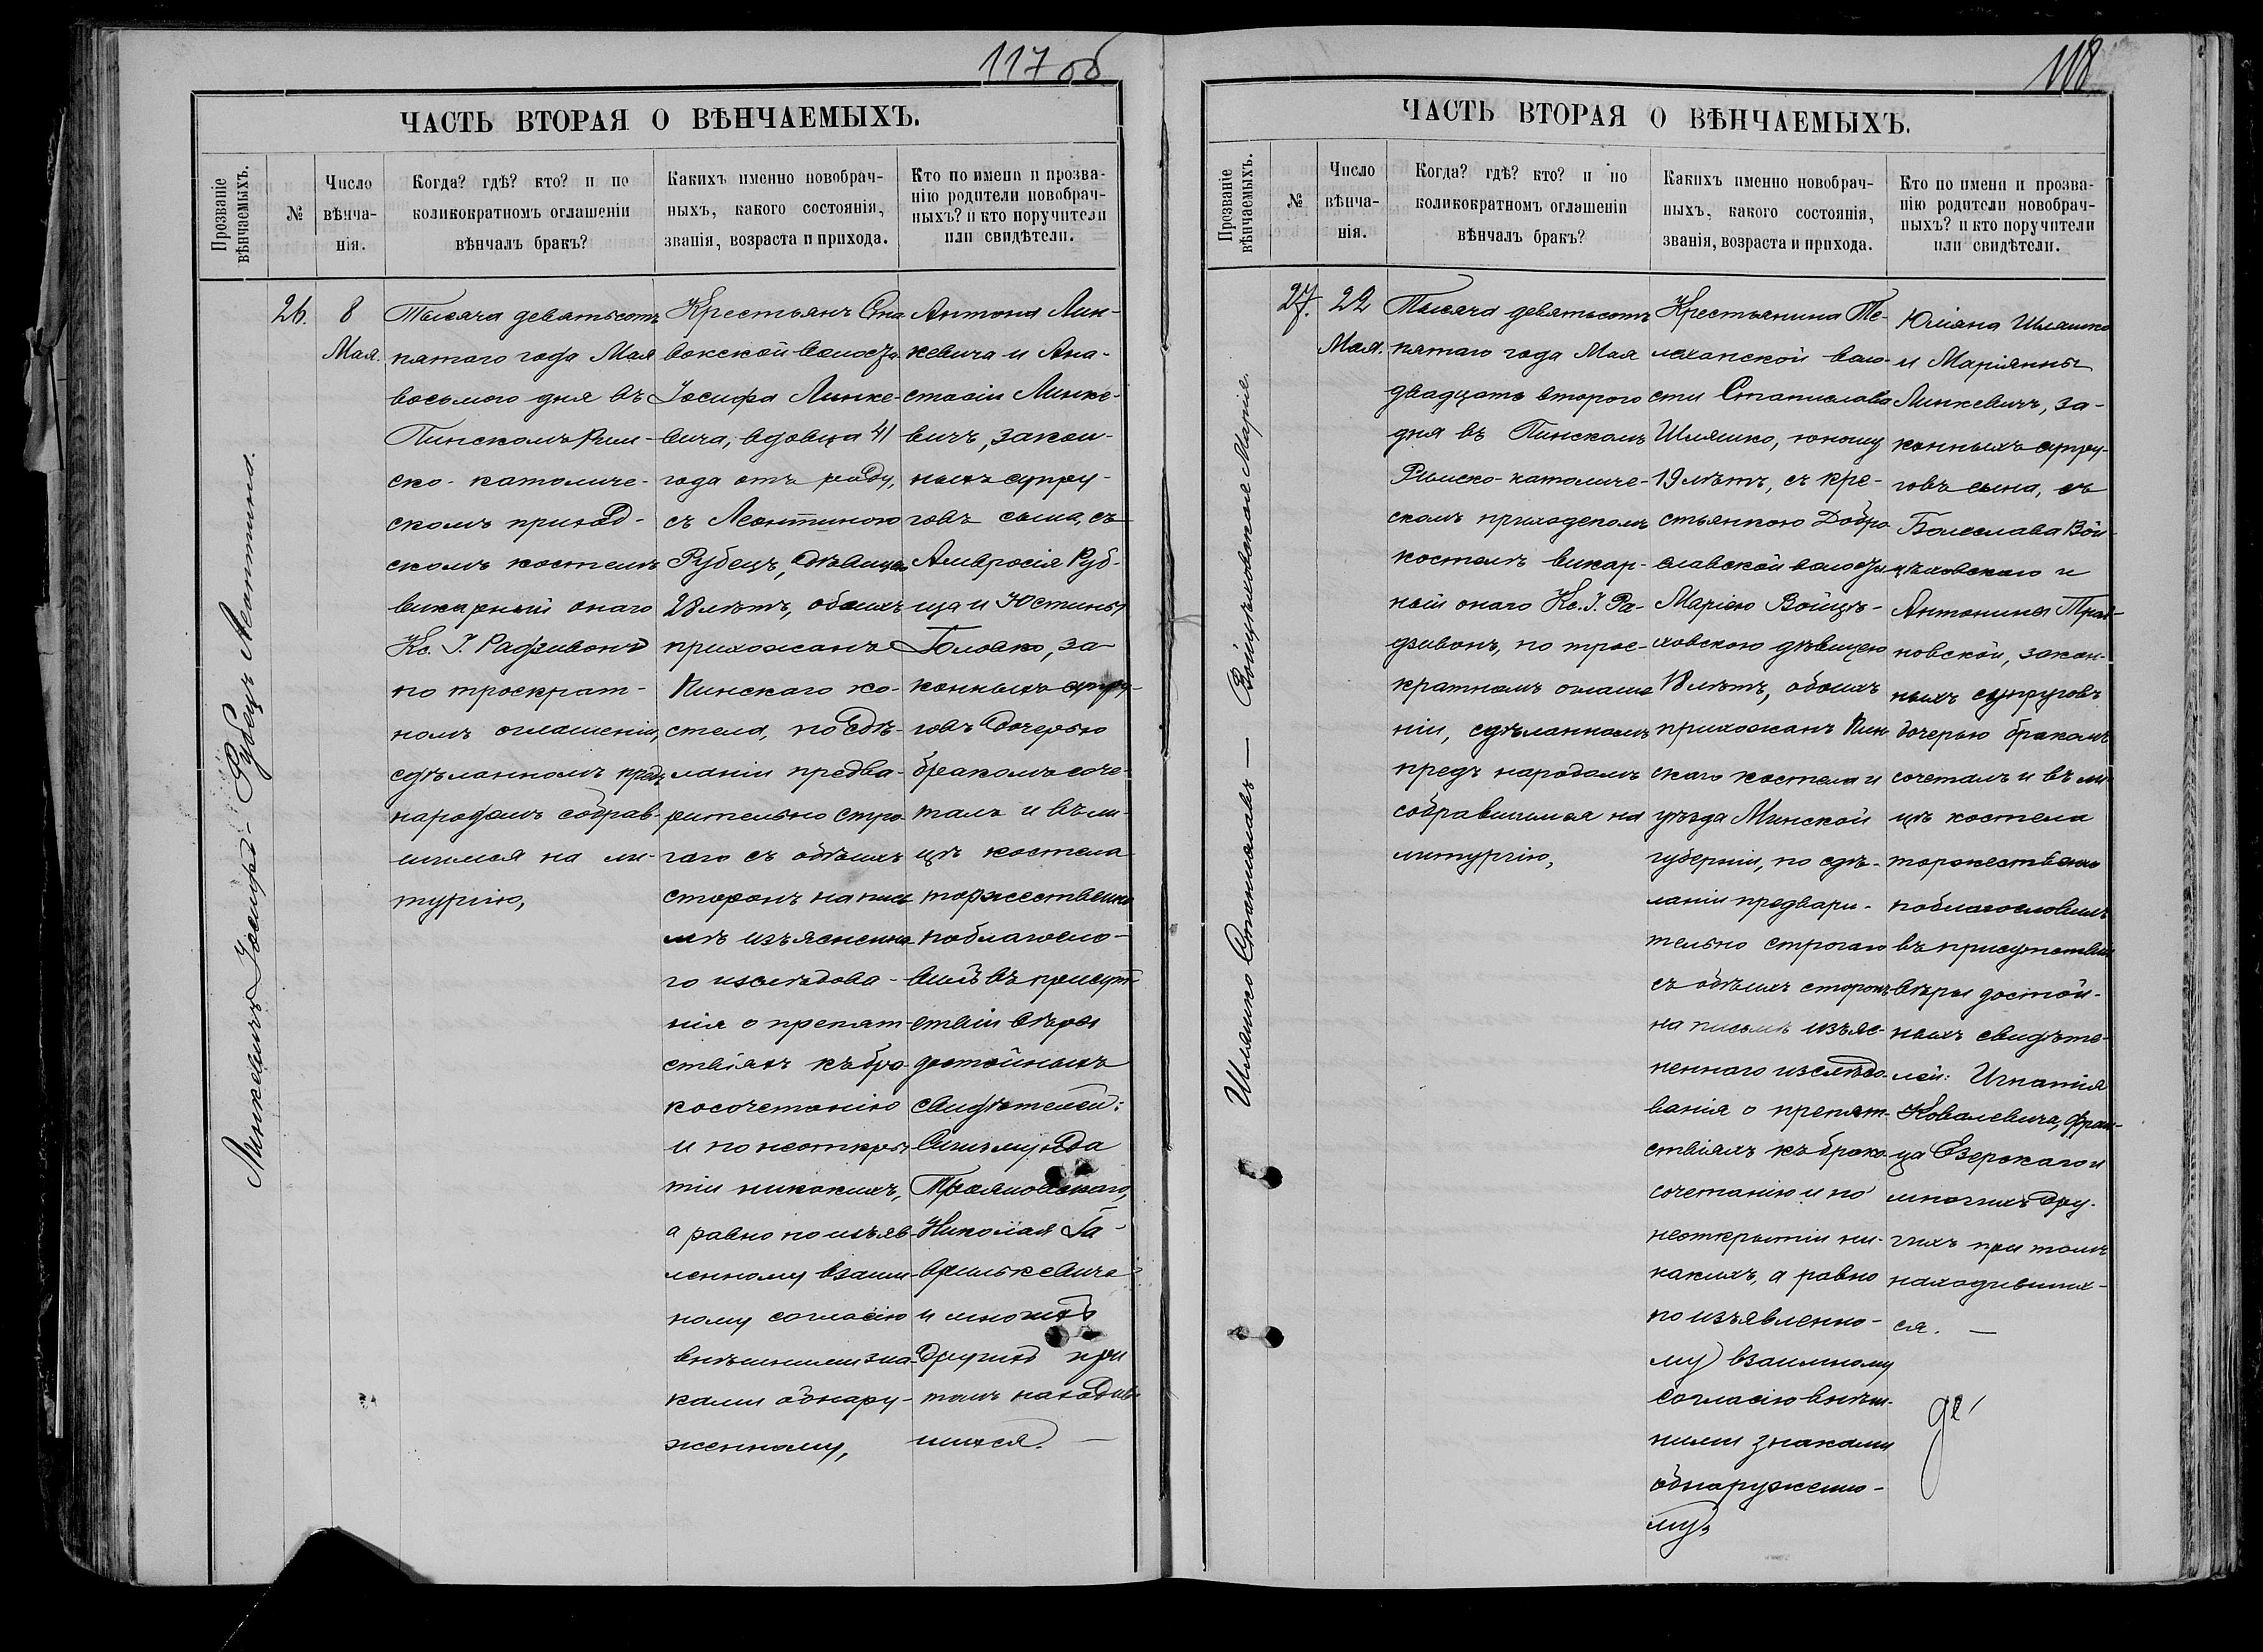 117 об
ЧАСТЬ ВТОРАЯ О ВѢНЧАЕМЫХЪ.
Прозваніе
вѣнчаемыхъ.
№
Число
вѣнча-
нія.
Когда? гдѣ? кто? и по
коликократномъ оглашеніи
вѣнчалъ бракъ?
Какихъ именно новобрач-
ныхъ, какого состоянія,
званія, возраста и прихода.
Кто по имени и прозва-
нію родители новобрач-
ныхъ? и кто поручители
или свидѣтели.
Линкевичъ Іосифъ - Рубецъ Леонтина.
26.
8
Мая.
Тысяча девятьсотъ
пятаго года Мая
восьмого дня въ
Пинскомъ Рим-
ско-католиче-
скомъ приход-
скомъ костелѣ
викарный онаго
Кс. І. Радзивонъ
по троекрат-
номъ оглашеніи,
сдѣланномъ предъ
народомъ собрав-
шимся на ли-
тургію,
Крестьянъ
вокской
Іосифа Линке-
вича, вдовца 41
года отъ роду,
съ Леонтиною
Рубецъ, дѣвицею
28 лѣтъ, обоихъ
прихожанъ
Пинскаго ко-
стела, по сдѣ-
ланіи предва-
рительно стро-
гаго съ обѣихъ
сторонъ на пись
мѣ изъясненна
го изслѣдова-
нія о препят-
ствіяхъ къ бра
косочетанію
и по неоткры
тіи никакихъ,
а равно по изъяв-
ленному взаим-
ному согласію
внѣшними зна-
ками обнару-
женному,
Антона Лин-
кевича и Ана-
стасіи Линке-
вичъ, закон-
ныхъ супру-
говъ сына, съ
Амвросія Руб-
ца и Юстины
за-
конныхъ супру-
говъ дочерью
бракомъ соче-
талъ и въ ли-
цѣ костела
торжественно
поблагосло-
вилъ въ присут-
ствіи вѣры
достойныхъ
свидѣтелей:
Сигизмунда
Трояновскаго,
Николая Га-
врилькевича
и многихъ
другихъ при
томъ находив-
шихся. —
118
ЧАСТЬ ВТОРАЯ О ВѢНЧАЕМЫХЪ.
Прозваніе
вѣнчаемыхъ.
№
Число
вѣнча-
нія.
Когда? гдѣ? кто? и по
коликократномъ оглашеніи
вѣнчалъ бракъ?
Какихъ именно новобрач-
ныхъ, какого состоянія,
званія, возраста и прихода.
Кто по имени и прозва-
нію родители новобрач-
ныхъ? и кто поручители
или свидѣтели.
Шляшко Станиславъ — Войцѣховская Марія.
27.
22
Мая.
Тысяча девятьсотъ
пятаго года Мая
двадцать второго
дня въ Пинскомъ
Римско-католиче-
скомъ приходскомъ
костелѣ викар-
ный онаго Кс. І. Ра-
дзивонъ, по трое-
кратномъ оглаше
ніи, сдѣланномъ
предъ народомъ
собравшимся на
литургію,
Крестьянина Те-
леханской воло-
сти Станислава
Шляшко, юношу
19 лѣтъ, съ кре-
стьянкою Добро-
славской волости
Маріею Войцѣ-
ховскою дѣвицею
18 лѣтъ, обоихъ
прихожанъ Пин
скаго костела и
уѣзда Минской
губерніи, по сдѣ-
ланіи предвари-
тельно строгаго
съ обѣихъ сторонъ
на письмѣ изъяс-
неннаго изслѣдо-
ванія о препят-
ствіяхъ къ брако
сочетанію и по
неоткрытіи ни-
какихъ, а равно
по изъявленно-
му взаимному
согласію внѣш-
ними знаками
обнаруженно-
му,
Юліана Шляшко
и Маріянны
Линкевичъ, за-
конныхъ супру-
говъ сына, съ
Болеслава Вой-
цѣховскаго и
Антонины Троя-
новской, закон-
ныхъ супруговъ
дочерью бракомъ
сочеталъ и въ ли
цѣ костела
торжественно
поблагословилъ
въ присутствіи
вѣры достой-
ныхъ свидѣте-
лей: Игнатія
Ковалевича, Фран-
ца Езерскаго и
многихъ дру-
гихъ при томъ
находивших-
ся. —